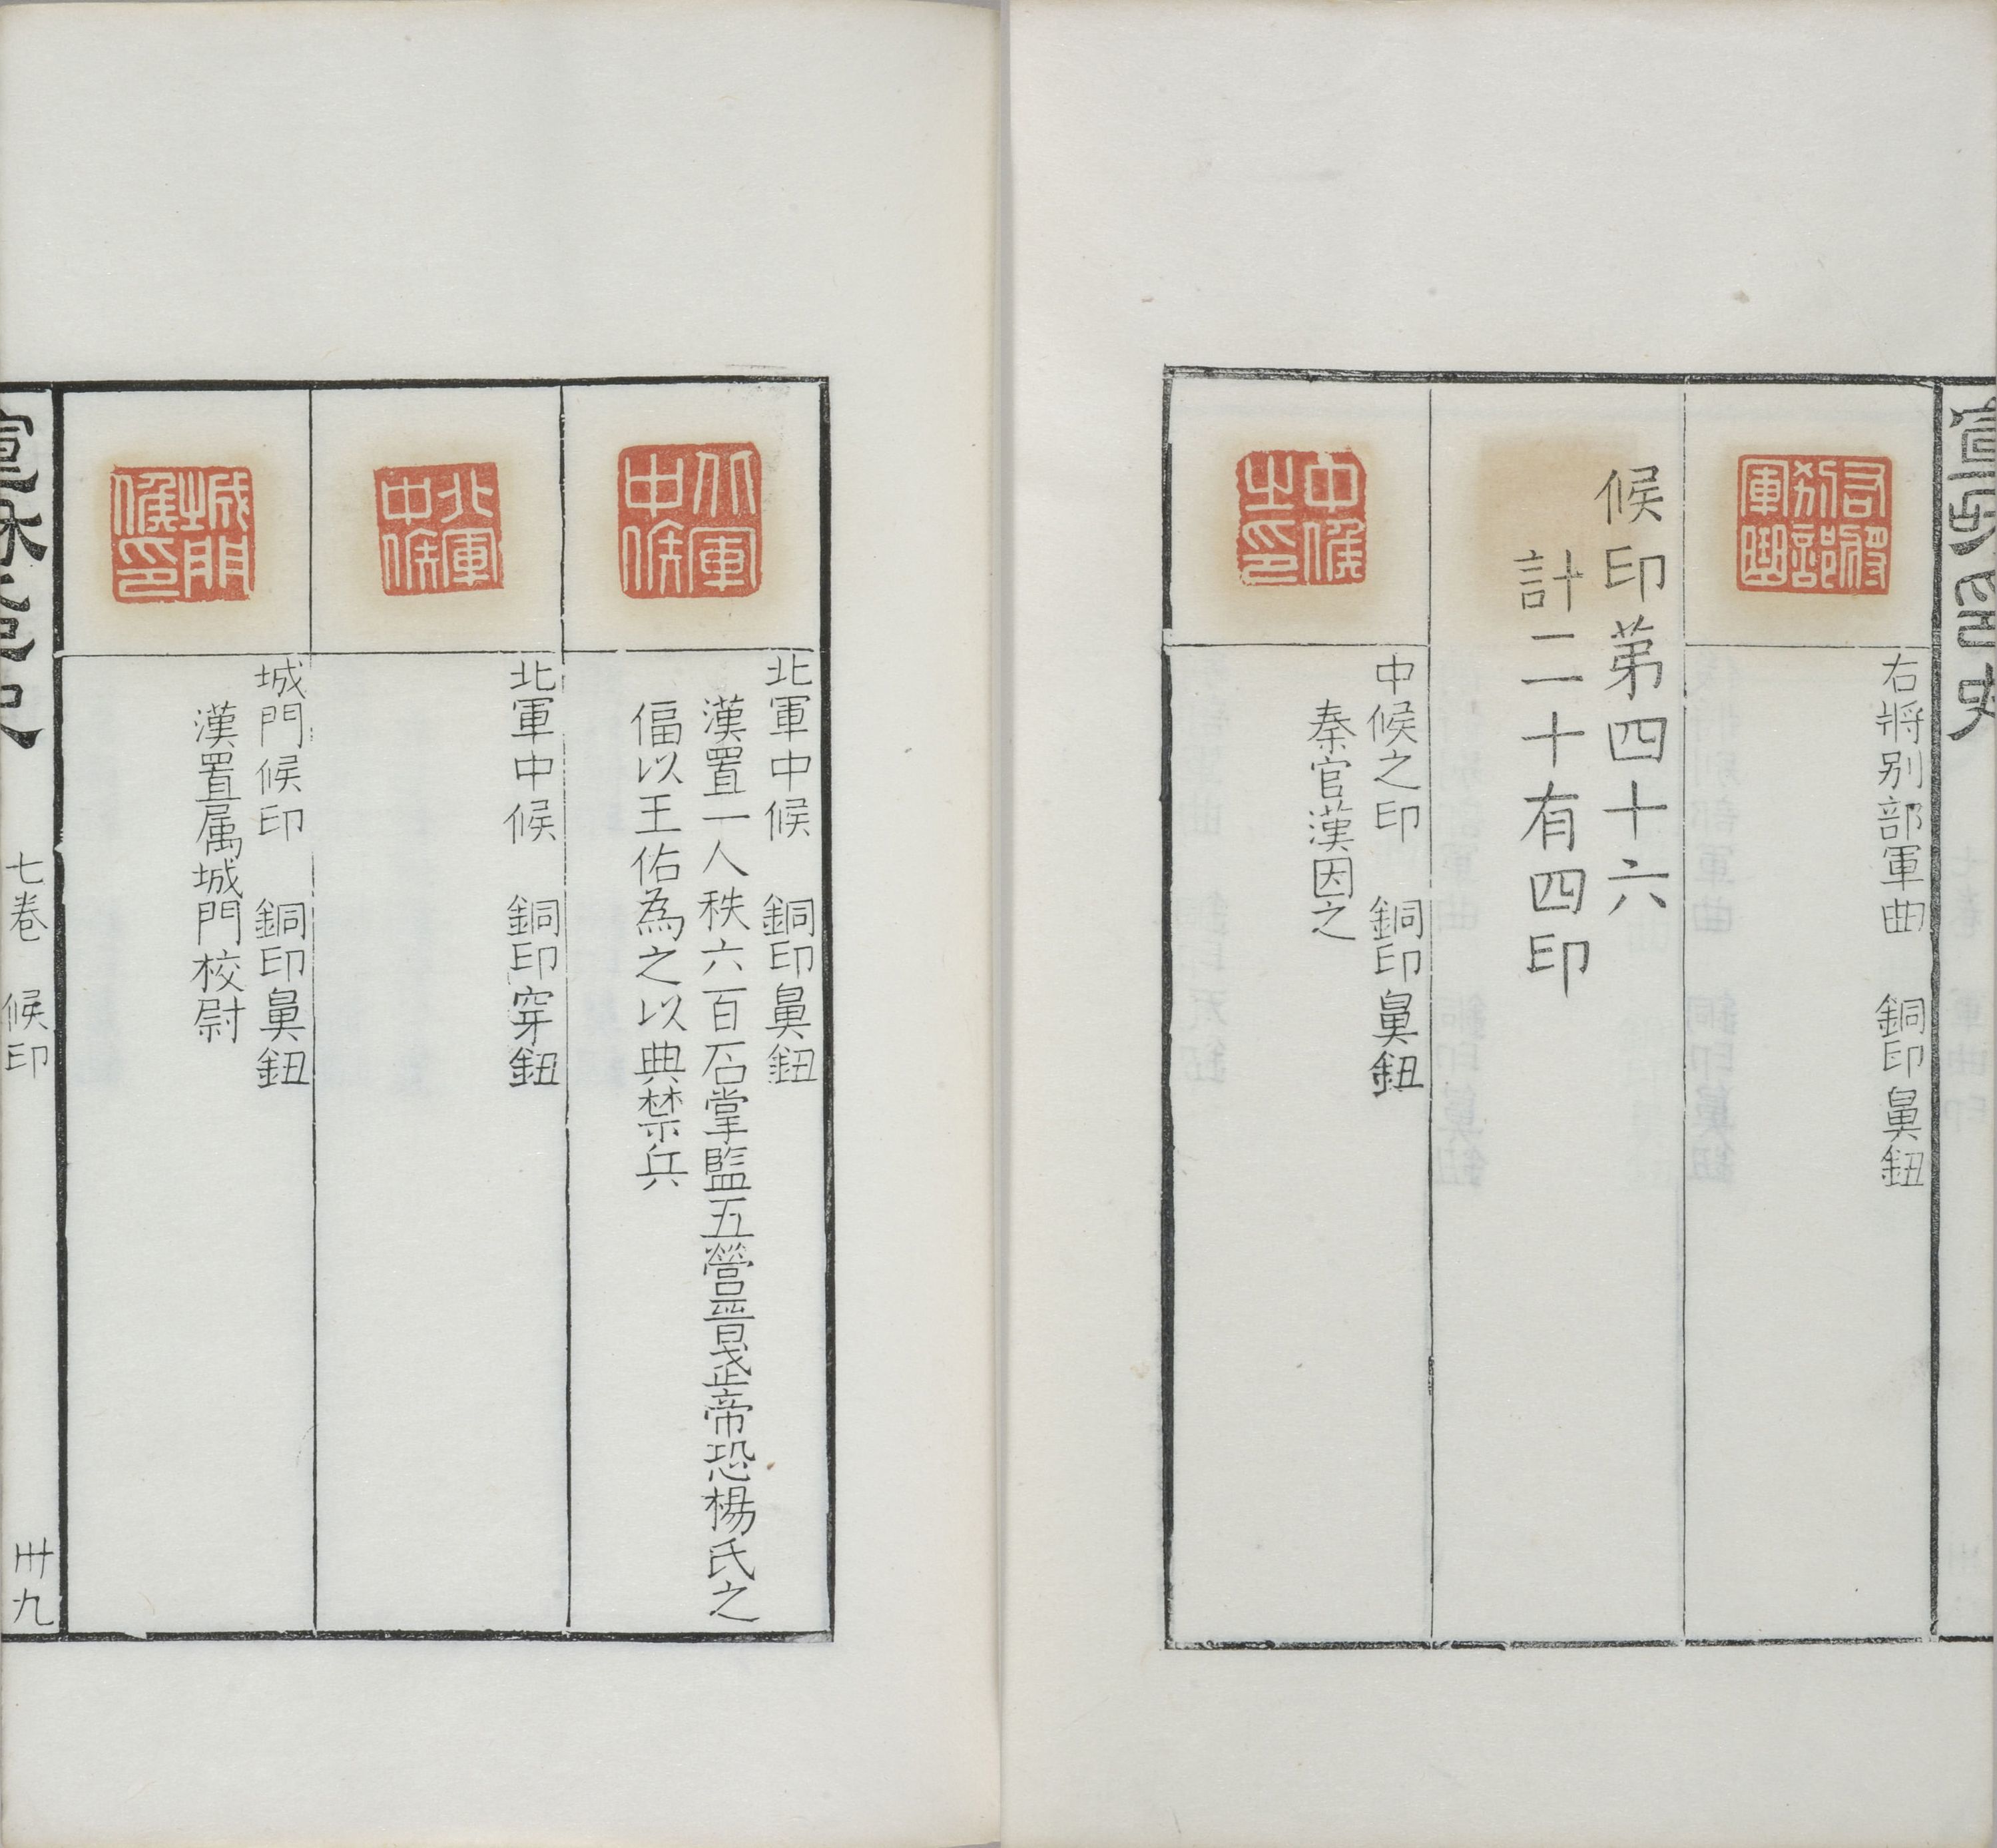 宣和印史
右將別部軍曲
右將別部軍曲　銅印鼻鈕
候印第四十六
計二十有四印
中候之印
中候之印　銅印鼻鈕
秦官漢因之
北軍中候
北軍中候　銅印鼻鈕
漢置一人秩六百石掌監五營晉武帝恐楊氏之
偪以王佑為之以典禁兵
北軍中候
北軍中候　銅印穿鈕
城門候印
城門候印　銅印鼻鈕
漢置属城門校尉
宣和印史　七卷　候印　卅九